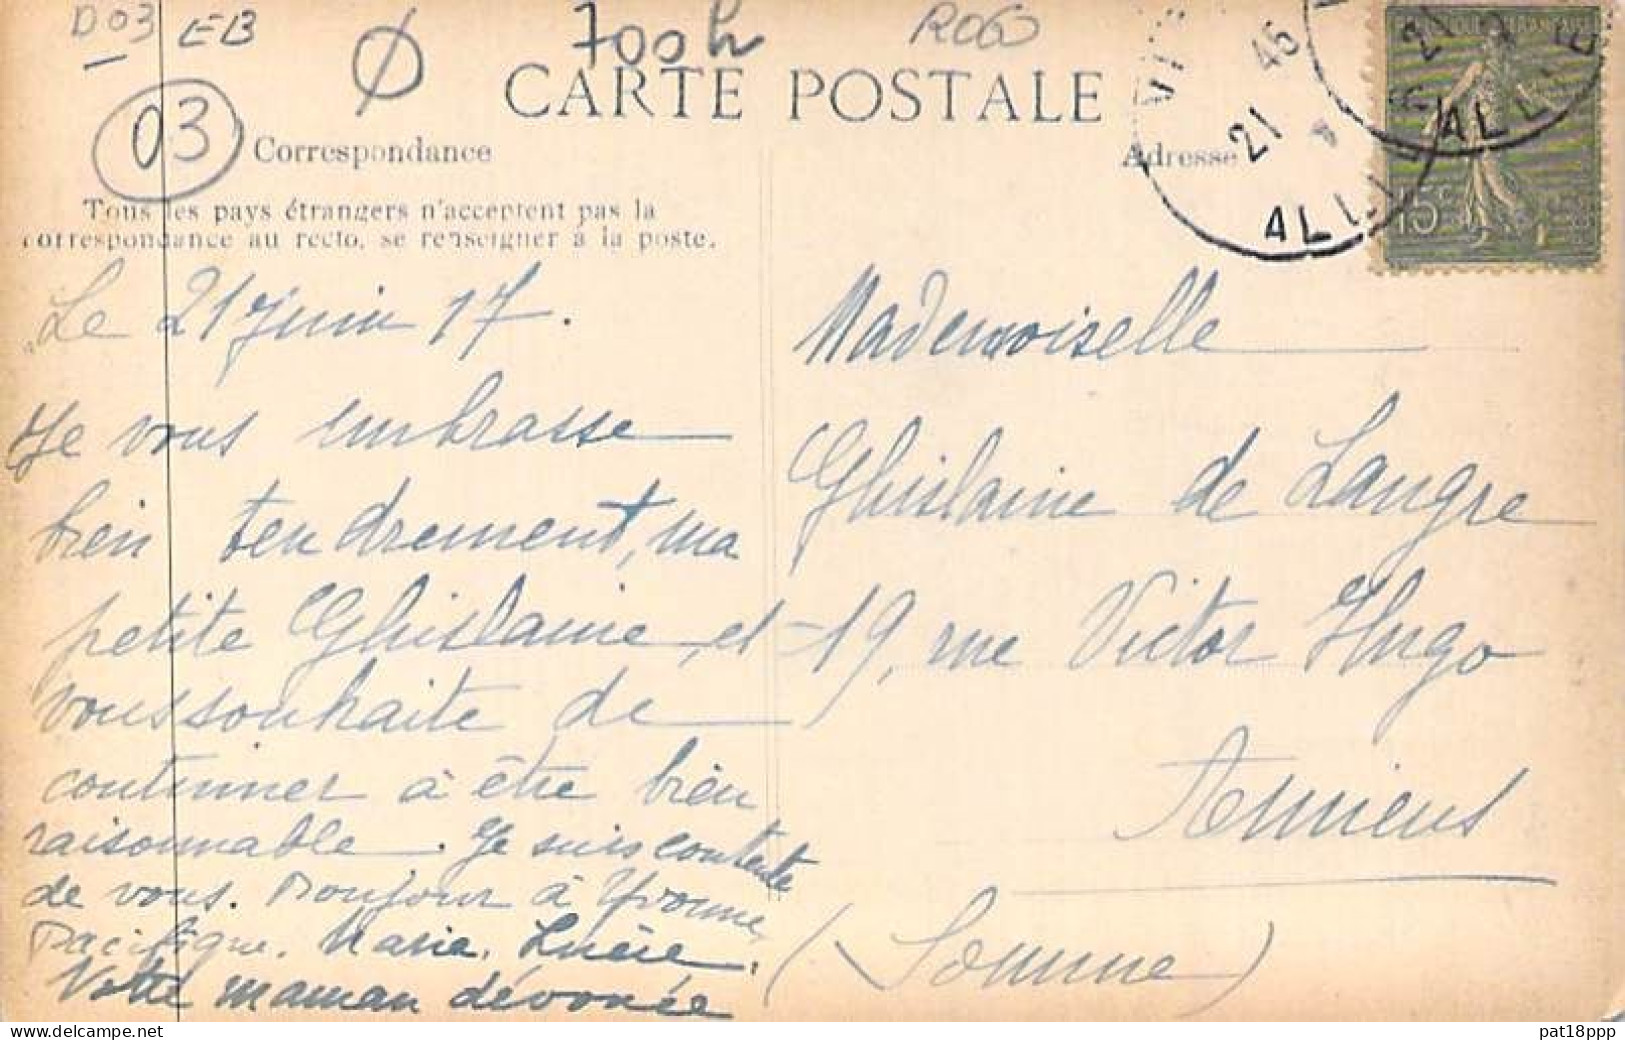 D03 EB
700h
R060
CARTE POSTALE
03
Correspondance
Adresse
Tous les pays étrangers n'acceptent pas la
correspondance au recto, se renseigner à la poste.
21
ALLIER
21
ALLIE
15c
Le 21 Juin 17.
Je vous embrasse
bien tendrement, ma
petite Ghislaine, et
vous souhaite de
continuer à être bien
raisonnable. Je suis contente
de vous. Bonjour à Yvonne,
Pacifique, Marie, Lucie.
Votre maman dévouée
Mademoiselle
Ghislaine de Langre
19, rue Victor Hugo
Amiens
(Somme)
pat18ppp